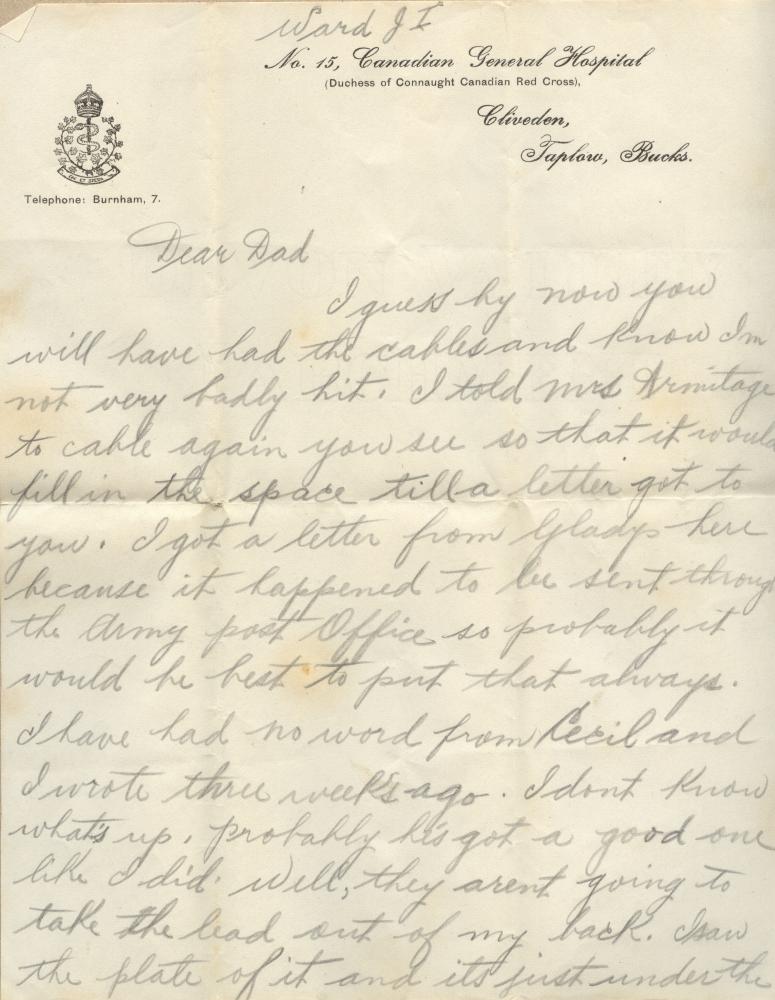 Ward J I
No. 15, Canadian General Hospital
(Duchess of Connaught Canadian Red Cross),
Cliveden,
Taplow, Bucks.
Telephone: Burnham, 7.
Dear Dad
I guess by now you
will have had the cables and know Im
not very badly hit. I told Mrs Armitage
to cable again you see so that it would
fill in the space till a letter got to
you. I got a letter from Gladys here
because it happened to be sent through
the Army post Office so probably it
would be best to put that always.
I have had no word from Cecil and
I wrote three weeks ago. I dont know
what's up, probably he's got a good one
like I did. Well, they arent going to
take the lead out of my back. I saw
the plate of it and its just under the